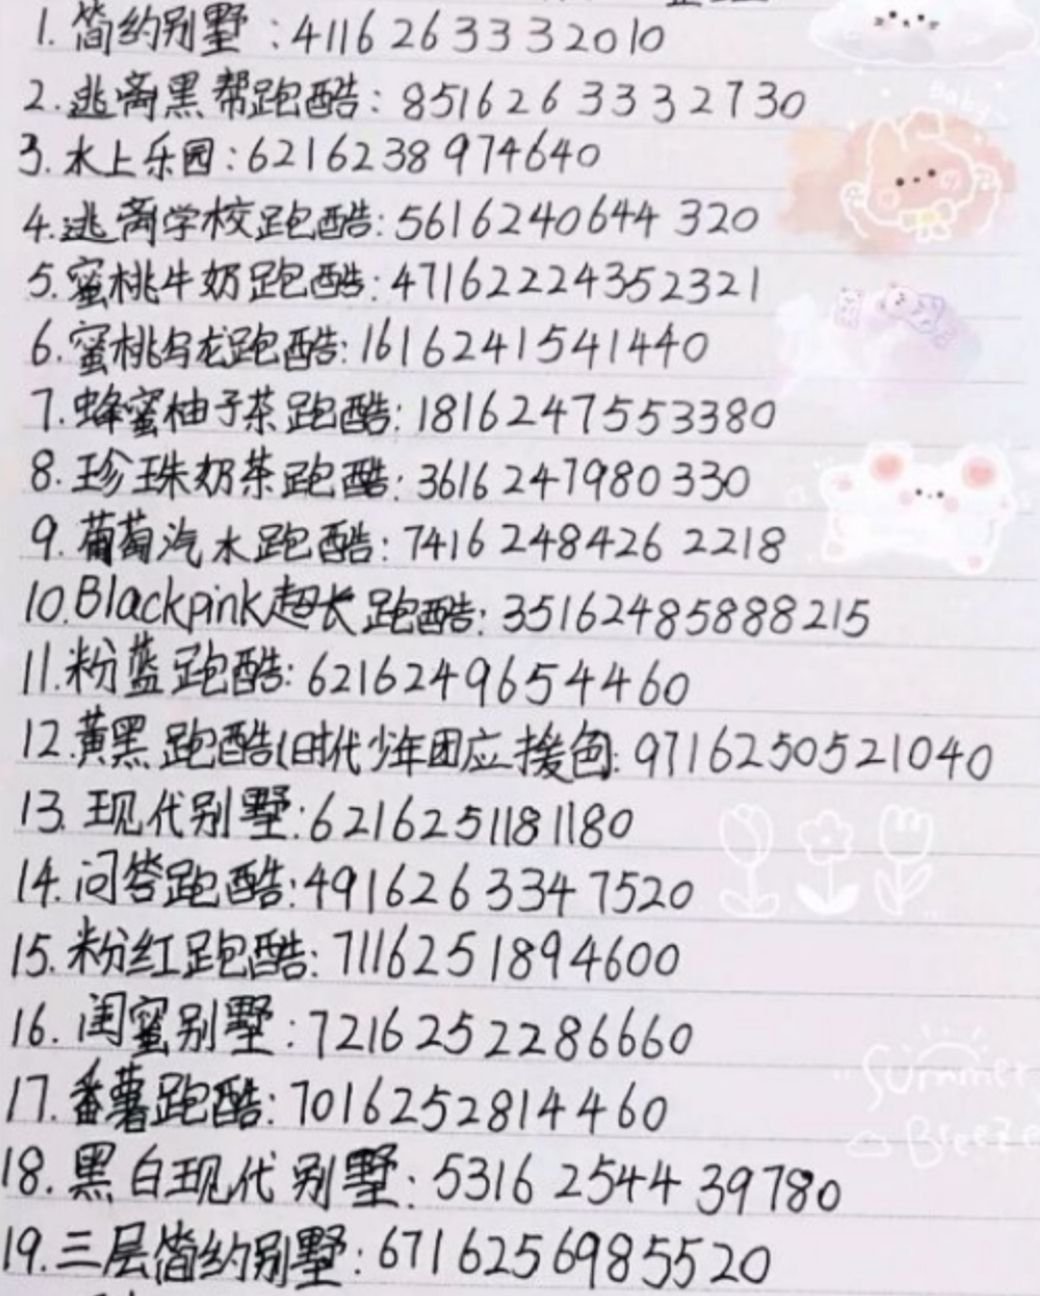 1. 简约别墅：4116263332010
2. 逃离黑帮跑酷：8516263332730
3. 水上乐园：6216238974640
4. 逃离学校跑酷：5616240644320
5. 蜜桃牛奶跑酷：4716222435 2321
6. 蜜桃乌龙跑酷：1616241541440
7. 蜂蜜柚子茶跑酷：1816247553380
8. 珍珠奶茶跑酷：3616247980330
9. 葡萄汽水跑酷：74162484262218
10. Blackpink超长跑酷：35162485888215
11. 粉蓝跑酷：6216249654460
12. 黄黑跑酷(时代少年团应援色：97116250521040
13. 现代别墅：6216251181180
14. 问答跑酷：4916263347520
15. 粉红跑酷：7116251894600
16. 闺蜜别墅：7216252286660
17. 番薯跑酷：7016252814460
18. 黑白现代别墅：5316254439780
19. 三层简约别墅：6716256985520
Baby
Summer
Breeze